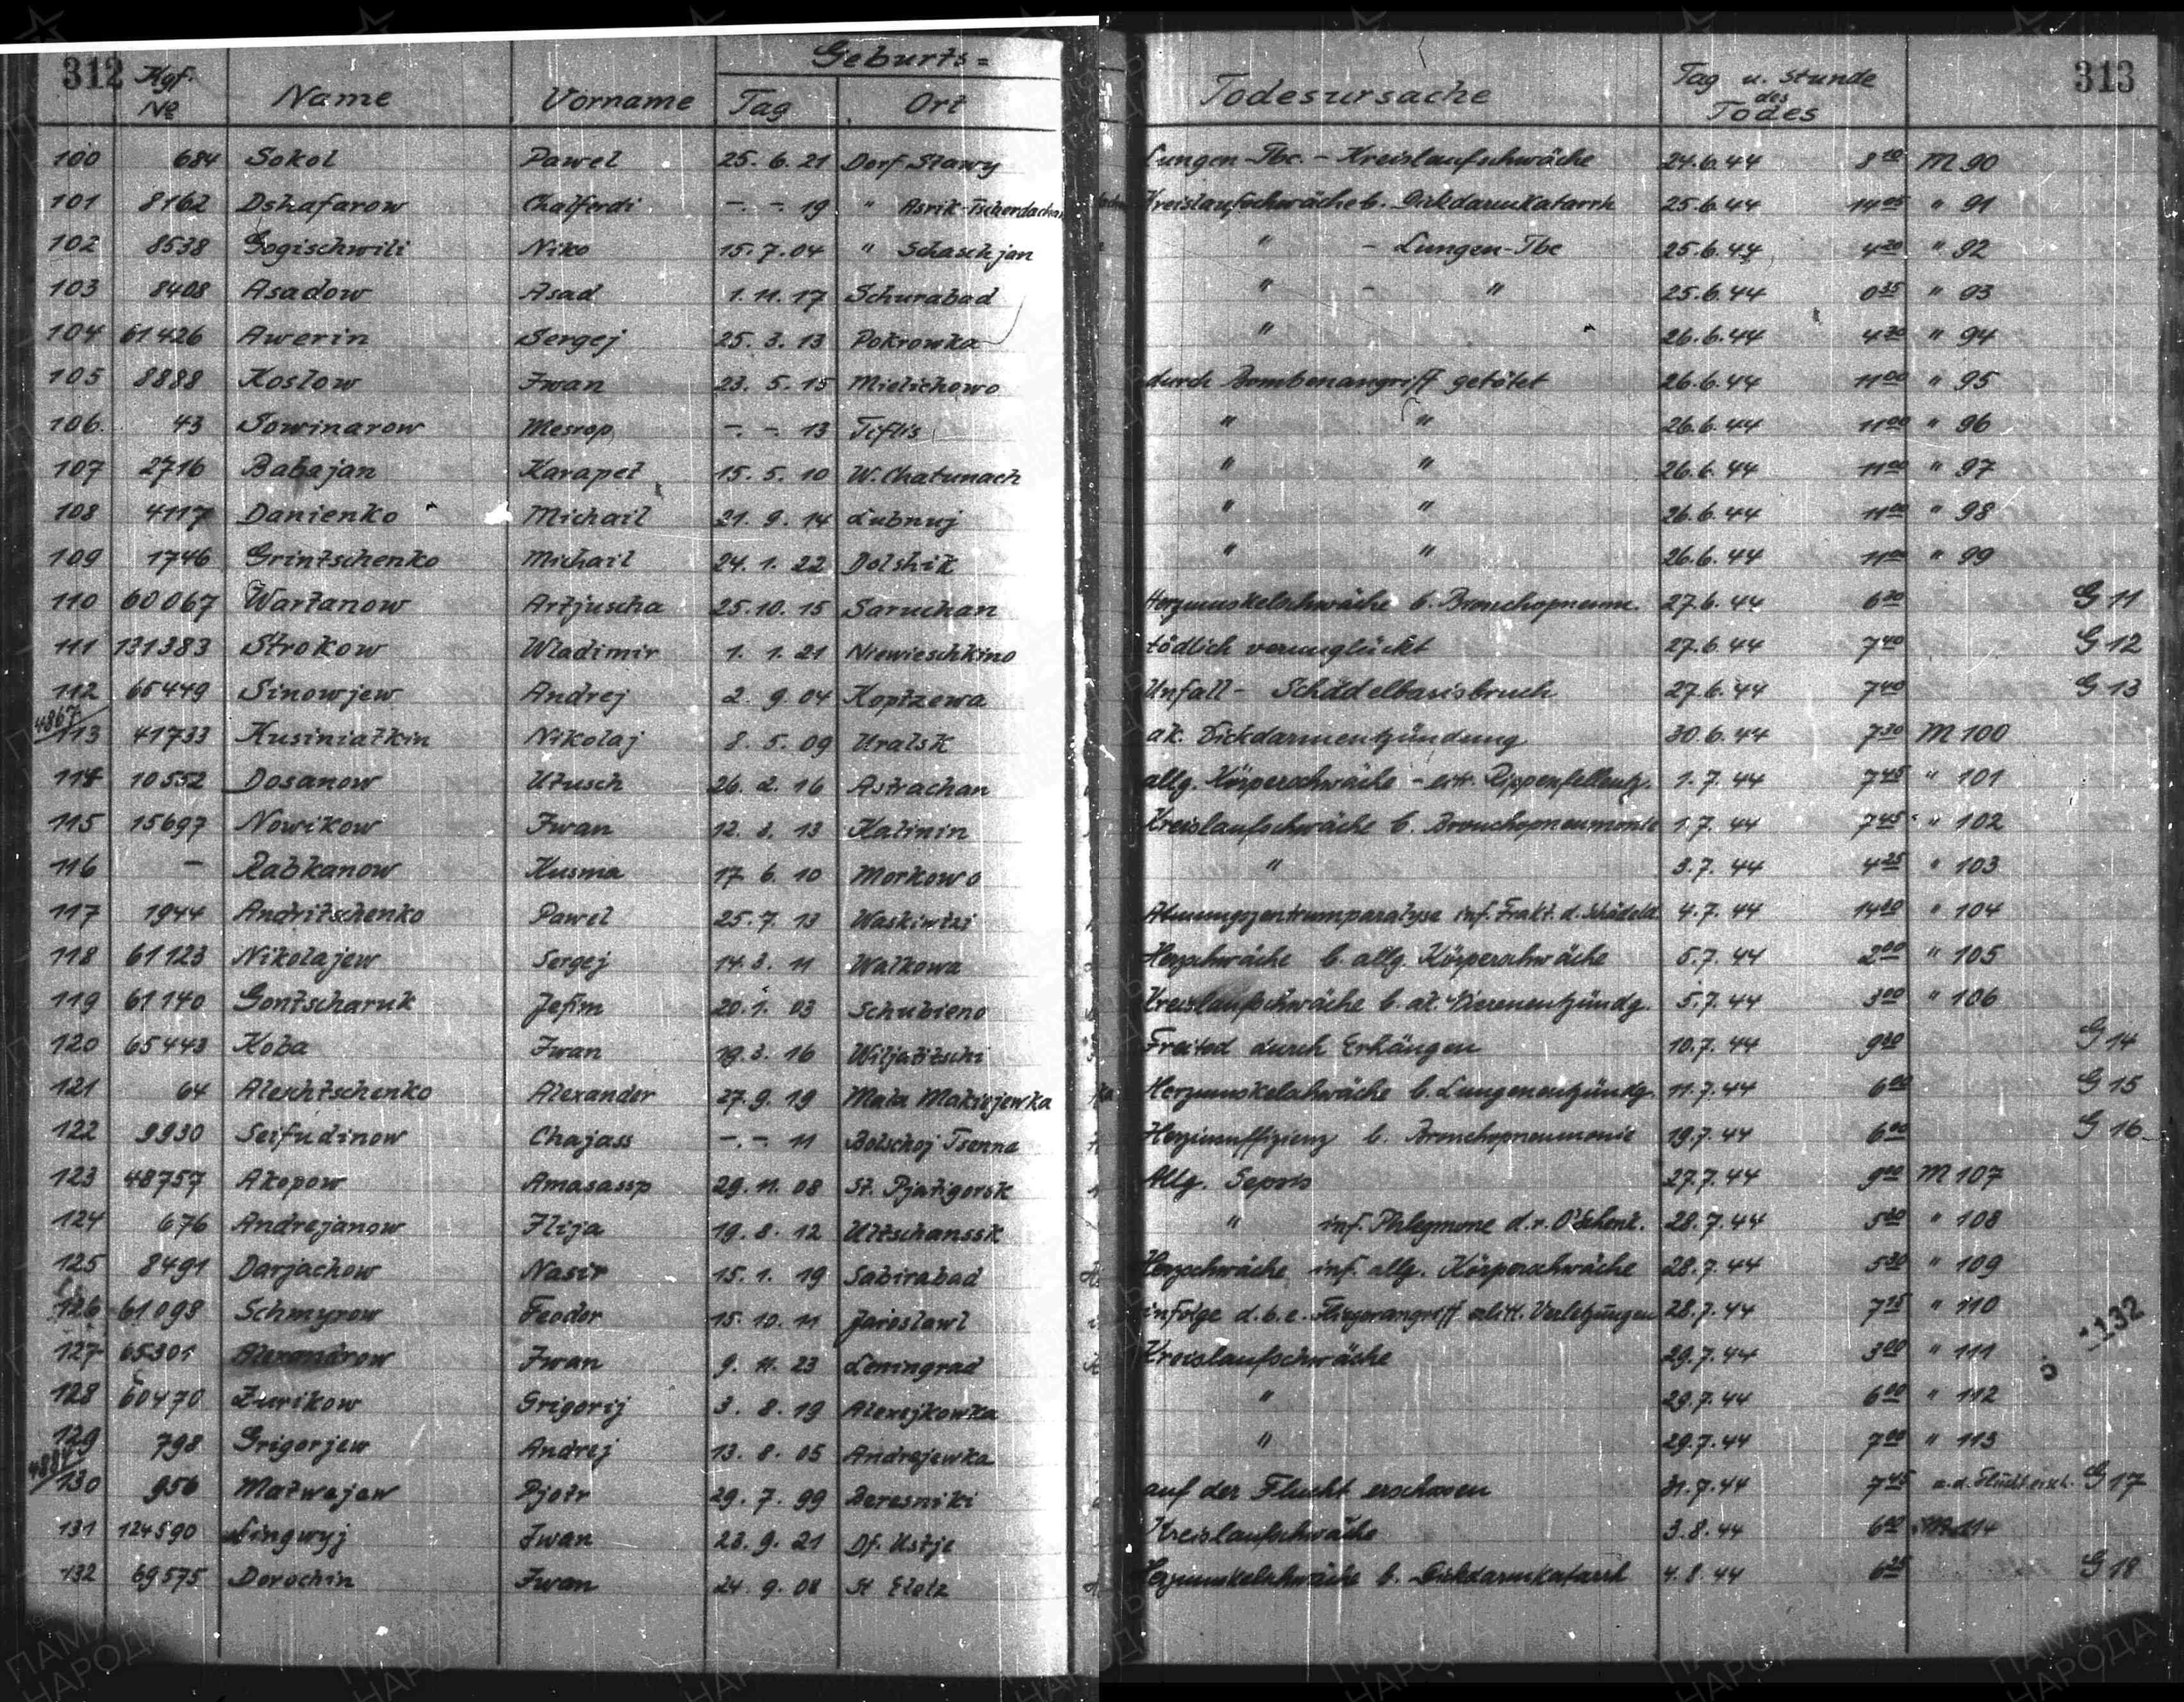 312 Kgf. Geburts= Tag u. Stunde 313
№ Name Vorname Tag Ort Todesursache des Todes
100 684 Sokol Pawel 25. 6. 21 Dorf Stawy Lungen-Tbc. - Kreislaufschwäche 24.6.44 8 10 M 90
101 8162 Dshafarow Chalferdi -. -. 19 " Asrik-Tscherdachan Kreislaufschwäche b. Dickdarmkatarrh 25.6.44 14 05 " 91
102 8538 Gogischwili Niko 15. 7. 04 " Schaschjan " - Lungen-Tbc 25.6.44 4 20 " 92
103 8408 Asadow Asad 1. 11. 17 Schurabad " - " 25.6.44 0 35 " 93
104 61426 Awerin Sergej 25. 3. 13 Pokrowka " 26.6.44 4 30 " 94
105 8888 Koslow Iwan 23. 5. 15 Mielichowo durch Bombenangriff getötet 26.6.44 11 00 " 95
106. 43 Sowinarow Mesrop -. -. 13 Tiflis " " 26.6.44 11 00 " 96
107 2716 Babajan Karapet 15. 5. 10 W. Chatunach " " 26.6.44 11 00 " 97
108 4117 Danienko Michail 21. 9. 14 Lubnuj " " 26.6.44 11 00 " 98
109 1746 Grintschenko Michail 24. 1. 22 Dolshik " " 26.6.44 11 00 " 99
110 60067 Wartanow Artjuscha 25. 10. 15 Saruchan Herzmuskelschwäche b. Bronchopneum. 27.6.44 6 30 G 11
111 131383 Strokow Wladimir 1. 1. 21 Niewieschkino tödlich verunglückt 27.6.44 7 40 G 12
112 65449 Sinowjew Andrej 2. 9. 04 Koptzewa Unfall - Schädelbasisbruch 27.6.44 7 40 G 13
4867
113 41733 Kusiniatkin Nikolaj 8. 5. 09 Uralsk ak. Dickdarmentzündung 30.6.44 7 30 M 100
114 10552 Dosanow Utusch 26. 2. 16 Astrachan allg. Körperschwäche - Rippenfellentz. 1.7.44 7 45 " 101
115 15697 Nowikow Iwan 12. 3. 13 Kalinin Kreislaufschwäche b. Bronchopneumonie 1.7.44 7 45 " 102
116 - Rabkanow Kusma 17. 6. 10 Morkowo " 3.7.44 4 25 " 103
117 1944 Andritschenko Pawel 25. 7. 13 Waskiwtzi Atmungszentrumparalyse inf. Frakt. d. Schädeld. 4.7.44 14 00 " 104
118 61123 Nikolajew Sergej 14. 3. 11 Walkowa Herzschwäche b. allg. Körperschwäche 5.7.44 2 00 " 105
119 61140 Gontscharuk Jefim 20. 1. 03 Schubieno Kreislaufschwäche b. ak. Nierenentzündg. 5.7.44 3 00 " 106
120 65443 Koba Iwan 19. 3. 16 Wiljatitschi Freitod durch Erhängen 10.7.44 9 00 G 14
121 64 Alexhtschenko Alexander 27. 9. 19 Mala Makiejewka Herzmuskelschwäche b. Lungenentzündg. 11.7.44 6 00 G 15
122 9930 Seifudinow Chajass -. -. 11 Bolschoj Tsenna Herzinsuffizienz b. Bronchopneumonie 19.7.44 6 00 G 16
123 48757 Akopow Amasassp 29. 11. 08 St. Pjatigorsk Allg. Sepsis 27.7.44 9 00 M 107
124 676 Andrejanow Ilija 19. 8. 12 Ultschanssk " inf. Phlegmone d. r. O'Schenk. 28.7.44 5 30 " 108
125 8491 Darjachow Nasir 15. 1. 19 Sabirabad Herzschwäche inf. allg. Körperschwäche 28.7.44 5 30 " 109
126 61098 Schmyrow Feodor 15. 10. 11 Jaroslawl infolge d. b. e. Fliegerangriff erlitt. Verletzungen 28.7.44 7 15 " 110
127 65301 Alexandrow Iwan 9. 11. 23 Leningrad Kreislaufschwäche 29.7.44 3 00 " 111 132
128 60470 Zurikow Grigorij 3. 8. 19 Alexejkowka " 29.7.44 6 00 " 112
129 798 Grigorjew Andrej 13. 8. 05 Andrejewka " 29.7.44 7 00 " 113
130 956 Matwejew Pjotr 29. 7. 99 Beresniki auf der Flucht erschossen 31.7.44 7 45 a.d. Flucht ersch. G 17
131 124590 Lingwyj Iwan 23. 9. 21 Df. Ustje Kreislaufschwäche 3.8.44 6 00 M 114
132 69575 Dorochin Iwan 24. 9. 08 St Elotz Herzmuskelschwäche b. Dickdarmkatarrh 4.8.44 6 25 G 18
ПАМЯТЬ НАРОДА